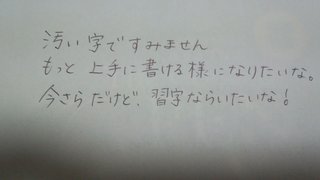 汚い字ですみません
もっと上手に書ける様になりたいな。
今さらだけど、習字ならいたいな!